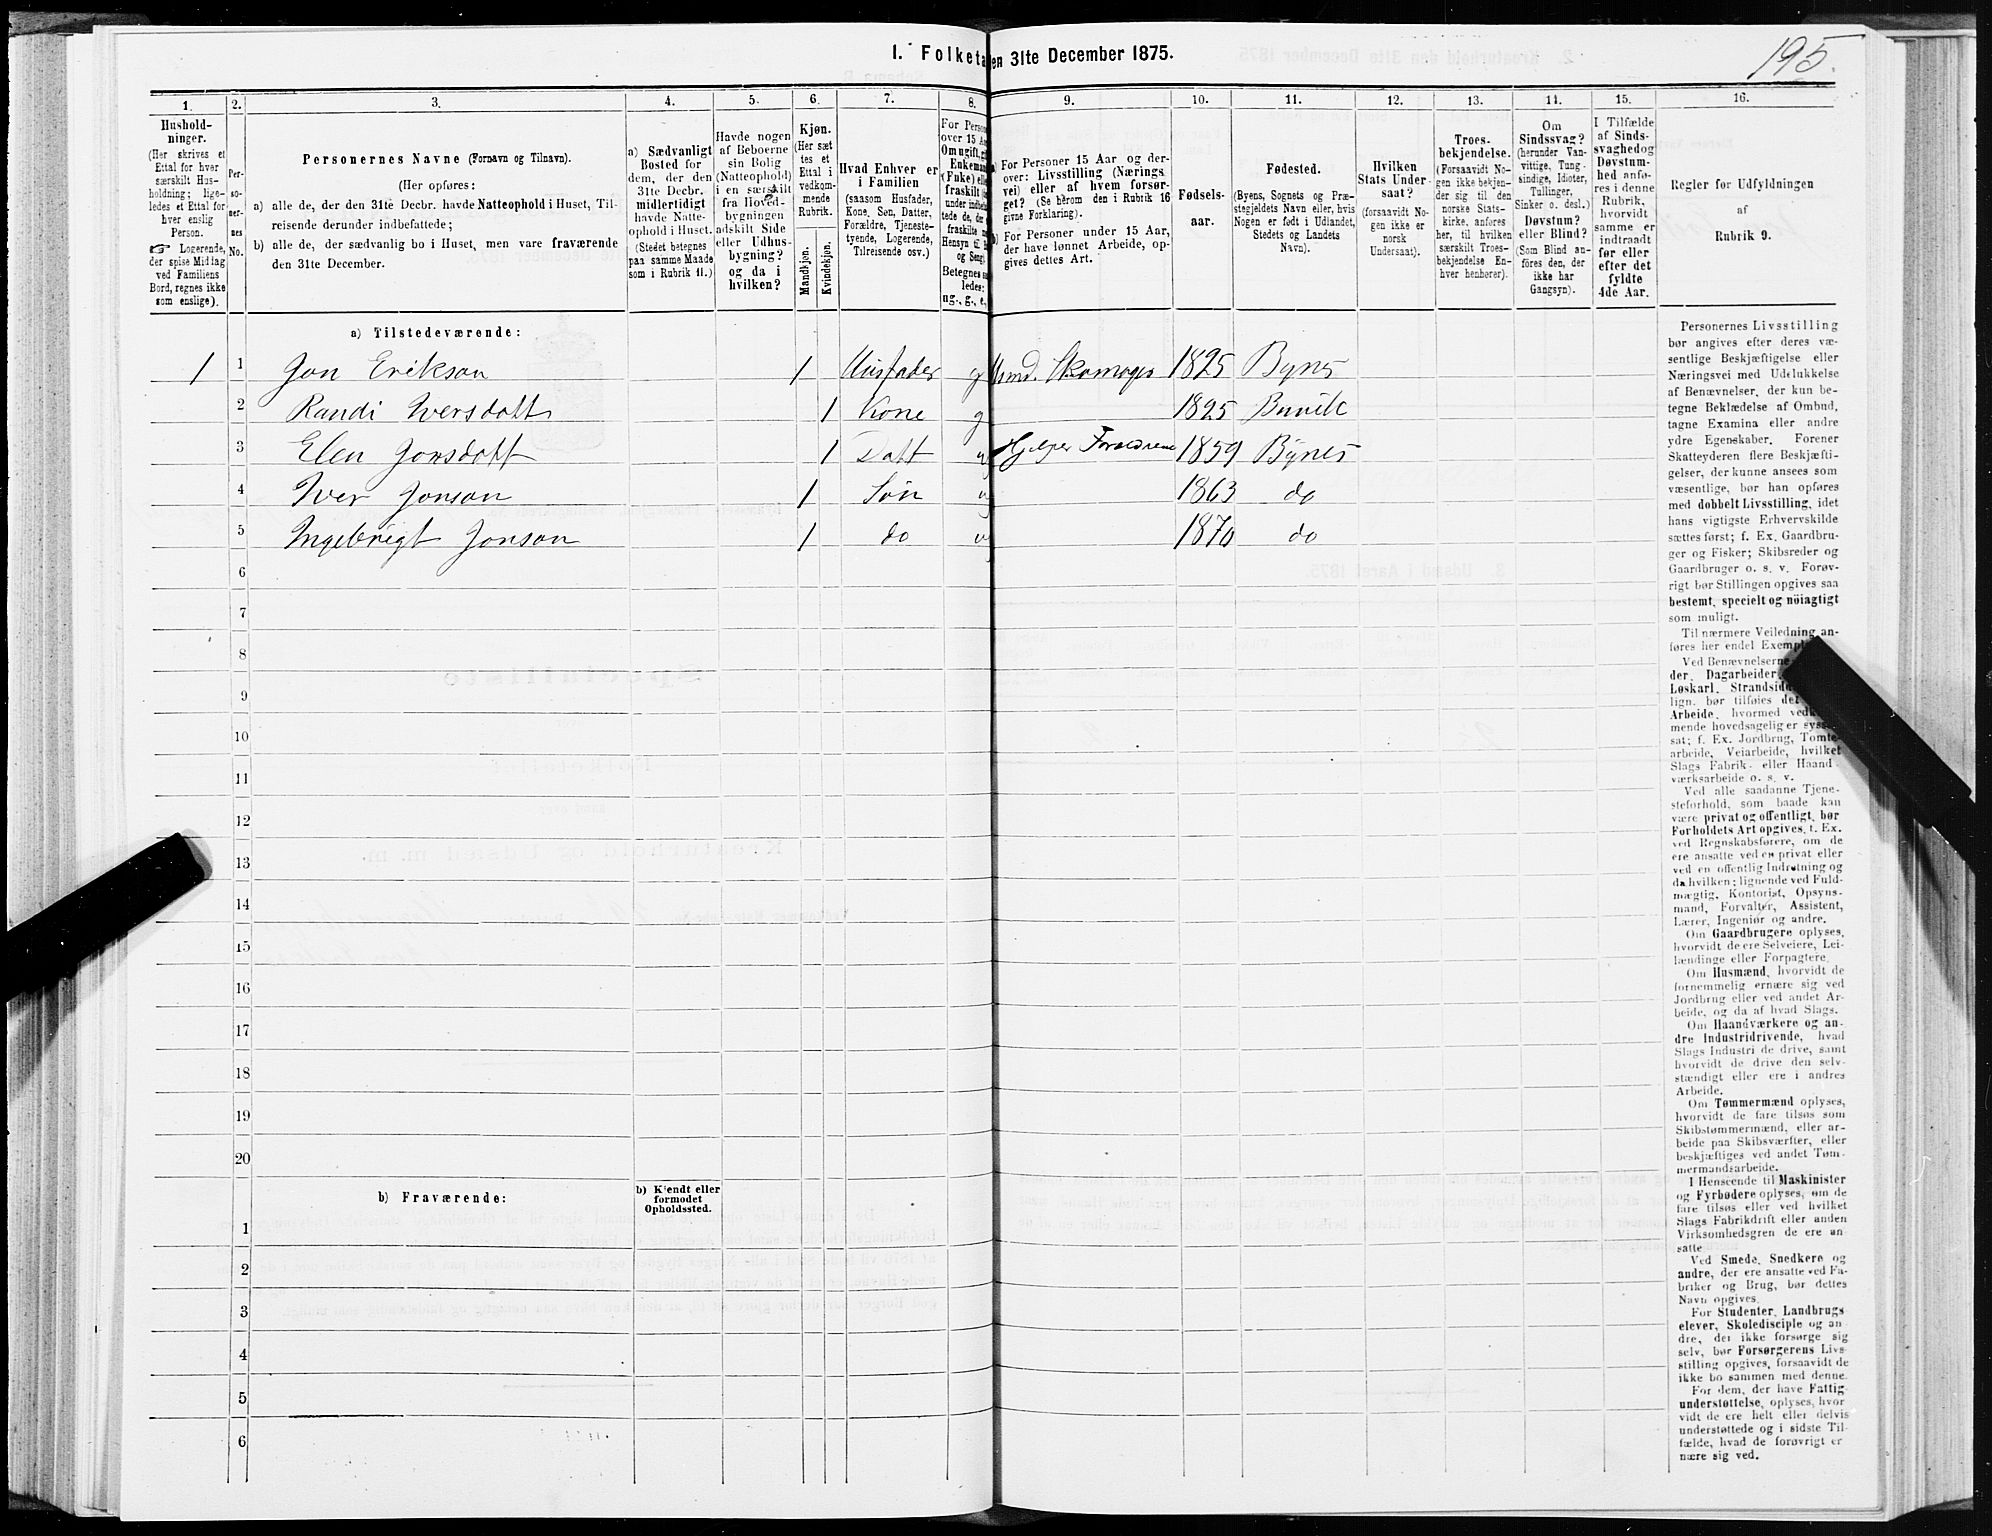 195.
1. Folketa en 31te December 1875.
1. 2. 3. 4. 5. 6. 7. 8. 9. 10. 11. 12. 13. 14. 15. 16.
Hushold-
ninger.
(Her skrives et
Ettal for hver
særskilt Hus-
holdning; lige-
ledes et Ettal for
hver enslig
Person.
☞ Logerende,
der spise Middag
ved Familiens
Bord, regnes ikke
som enslige).
Per-
so-
ner-
nes
No.
Personernes Navne (Fornavn og Tilnavn).
(Her opføres:
a) alle de, der den 31te Decbr. havde Natteophold i Huset, Til-
reisende derunder indbefattede;
b) alle de, der sædvanlig bo i Huset, men vare fraværende
den 31te December.
a) Sædvanligt
Bosted for
dem, der den
31te Decbr.
midlertidigt
havde Natte-
ophold i Huset.
(Stedet betegnes
paa samme Maade
som i Rubrik 11.)
Havde nogen
af Beboerne
sin Bolig
(Natteophold)
i en særskilt
fra Hoved-
bygningen
adskilt Side
eller Udhus-
bygning?
og da i
hvilken?
Kjøn.
(Her sæt
tes et
Ettal i
vedkom-
mende
Rubrik.
Mandkjøn.
Kvindekjøn.
Hvad Enhver er
i Familien
(saasom Husfader,
Kone, Søn, Datter,
Forældre, Tjeneste-
tyende, Logerende,
Tilreisende osv.)
For Person
over 15 Aar
Om ugift, g
Enkeman
(Enke) ell
fraskilt
under indbe
tede de, de
fraskilte
Hensyn til
og Seng).
Betegnes s
ledes:
ug., g., e.,
a) For Personer 15 Aar og der-
over: Livsstilling (Nærings
vei) eller af hvem forsør-
get? (Se herom den i Rubrik 16
givne Forklaring).
b) For Personer under 15 Aar,
der have lønnet Arbeide, op-
gives dettes Art.
Fødsels-
aar.
Fødested.
(Byens, Sognets og Præ-
stegjeldets Navn eller, hvis
Nogen er født i Udlandet,
Stedets og Landets
Navn).
Hvilken
Stats Under-
saat?
(forsaavidt No-
gen ikke er
norsk
Undersaat).
Troes-
bekjendelse.
(Forsaavidt No-
gen ikke bekjen-
der sig til den
norske Stats-
kirke, anføres
her, til hvilken
særskilt Troes-
bekjendelse En-
hver henhører).
Om
Sindssvag?
(herunder Van-
vittige, Tung-
sindige, Idioter,
Tullinger,
Sinker o. desl.)
Døvstum?
eller Blind?
(Som Blind an-
føres den, der
ikke har
Gangsyn).
I Tilfælde
af Sinds-
svaghed og
Døvstum-
hed anfø-
res i denne
Rubrik,
hvorvidt
samme er
indtraadt
før eller
efter det
fyldte
4de Aar.
Regler for Udfyldningen
af
Rubrik 9.
a) Tilstedeværende:
1 1 Jon Erikson 1 Husfader g Husmd. Skomager 1825 Bynes
2 Randi Iversdatt 1 Kone g 1825 Buvik
3 Elen Jonsdatt 1 Datt u Hjelper Forældrene 1859 Bynes
4 Iver Jonson 1 Søn u 1863 do
5 Ingebrigt Jonson 1 do u 1870 do
6
7
8
9
10
11
12
13
14
15
16
17
18
19
20
b) Fraværende:
b) Kjendt eller
formodet
Opholdssted.
1
2
3
4
5
6
Personernes Livsstilling
bør angives efter deres væ-
sentlige Beskjæftigelse eller
Næringsvei med Udelukkelse
af Benævnelser, der kun be-
tegne Beklædelse af Ombud,
tagne Examina eller andre
ydre Egenskaber. Forener
Skatteyderen flere Beskjæfti-
gelser, der kunne ansees som
væsentlige, bør han opføres
med dobbelt Livsstilling, idet
hans vigtigste Erhvervskilde
sættes først; f. Ex. Gaardbru-
ger og Fisker; Skibsreder og
Gaardbruger o. s. v. Forøv-
rigt bør Stillingen opgives saa
bestemt, specielt og nöiagtigt
som muligt.
Til nærmere Veiledning an-
føres her endel Exemp
Ved Benævnelserne
der, Dagarbeider,
Løskarl, Strandsid
lign. bør tilføies de
Arbeide, hvormed ved
mende hovedsagelig er syss
sat; f. Ex. Jordbrug, Tomte-
arbeide, Veiarbeide, hvilket
Slags Fabrik- eller Haand-
værksarbeide o. s. v.
Ved alle saadanne Tjene-
steforhold, som baade kan
være privat og offentligt, bør
Forholdets Art opgives, f. Ex.
ved Regnskabsførere, om de
ere ansatte ved en privat eller
ved en offentlig Indretning og
da hvilken; lignende ved Fuld-
mægtig, Kontorist, Opsyns-
mand, Forvalter, Assistent,
Lærer, Ingeniør og andre.
Om Gaardbrugere oplyses,
hvorvidt de ere Selveiere, Lei-
lændinge eller Forpagtere.
Om Husmænd, hvorvidt de
fornemmelig ernære sig ved
Jordbrug eller ved andet Ar-
beide, og da af hvad Slags.
Om Haandværkere og an-
dre Industridrivende, hvad
Slags Industri de drive, samt
hvorvidt de drive den selv-
stændigt eller ere i andres
Arbeide.
Om Tømmermænd oplyses,
hvorvidt de fare tilsøs som
Skibstømmermænd, eller ar-
beide paa Skibsværfter, eller
beskjæftiges ved andet Tøm-
mermandsarbeide.
I Henseende til Maskinister
og Fyrbødere oplyses, om de
fare tilsøs eller ved hvilket
Slags Fabrikdrift eller anden
Virksomhedsgren de ere an-
satte
Ved Smede, Snedkere og
andre, der ere ansatte ved Fa-
briker og Brug, bør dettes
Navn opgives.
For Studenter, Landbrugs
elever, Skoledisciple og an-
dre, der ikke forsørge sig
selv, bør Forsørgerens Livs-
stilling opgives, forsaavidt de
ikke bo sammen med denne.
For dem, der have Fattig-
understøttelse, oplyses, hvor
vidt de ere helt eller delvis
understøttede og i sidste Til-
fælde, hvad de forøvrigt er
nære sig ved.